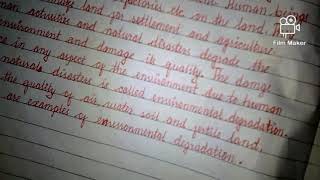 land factories etc on the land. Human
land for settlement and agriculture.
man activities and natural disasters degrade the
environment and damage its quality. The damage
ce in any aspect of the environment due to human
natural disasters is called environmental degradation.
the quality of air water soil and fertile land,
are examples of environmental degradation.
Film Maker